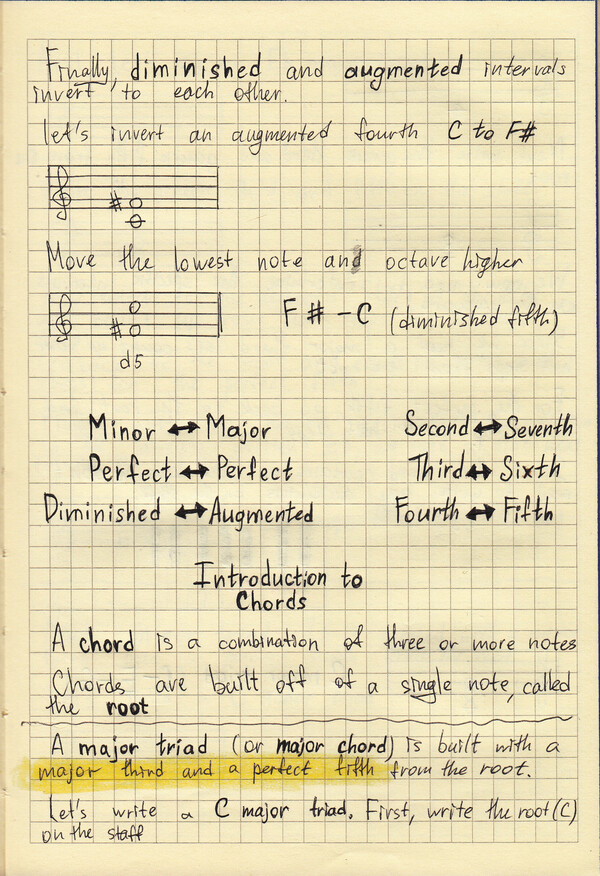 Finally, diminished and augmented intervals
invert to each other.
let's invert an augmented fourth C to F#
#
Move the lowest note and octave higher
#
F # - C (diminished fifth)
d5
Minor ↔ Major
Second ↔ Seventh
Perfect ↔ Perfect
Third ↔ Sixth
Diminished ↔ Augmented
Fourth ↔ Fifth
Introduction to
Chords
A chord is a combination of three or more notes
Chords are built off of a single note, called
the root
A major triad (or major chord) is built with a
major third and a perfect fifth from the root.
Let's write a C major triad. First, write the root (C)
on the staff